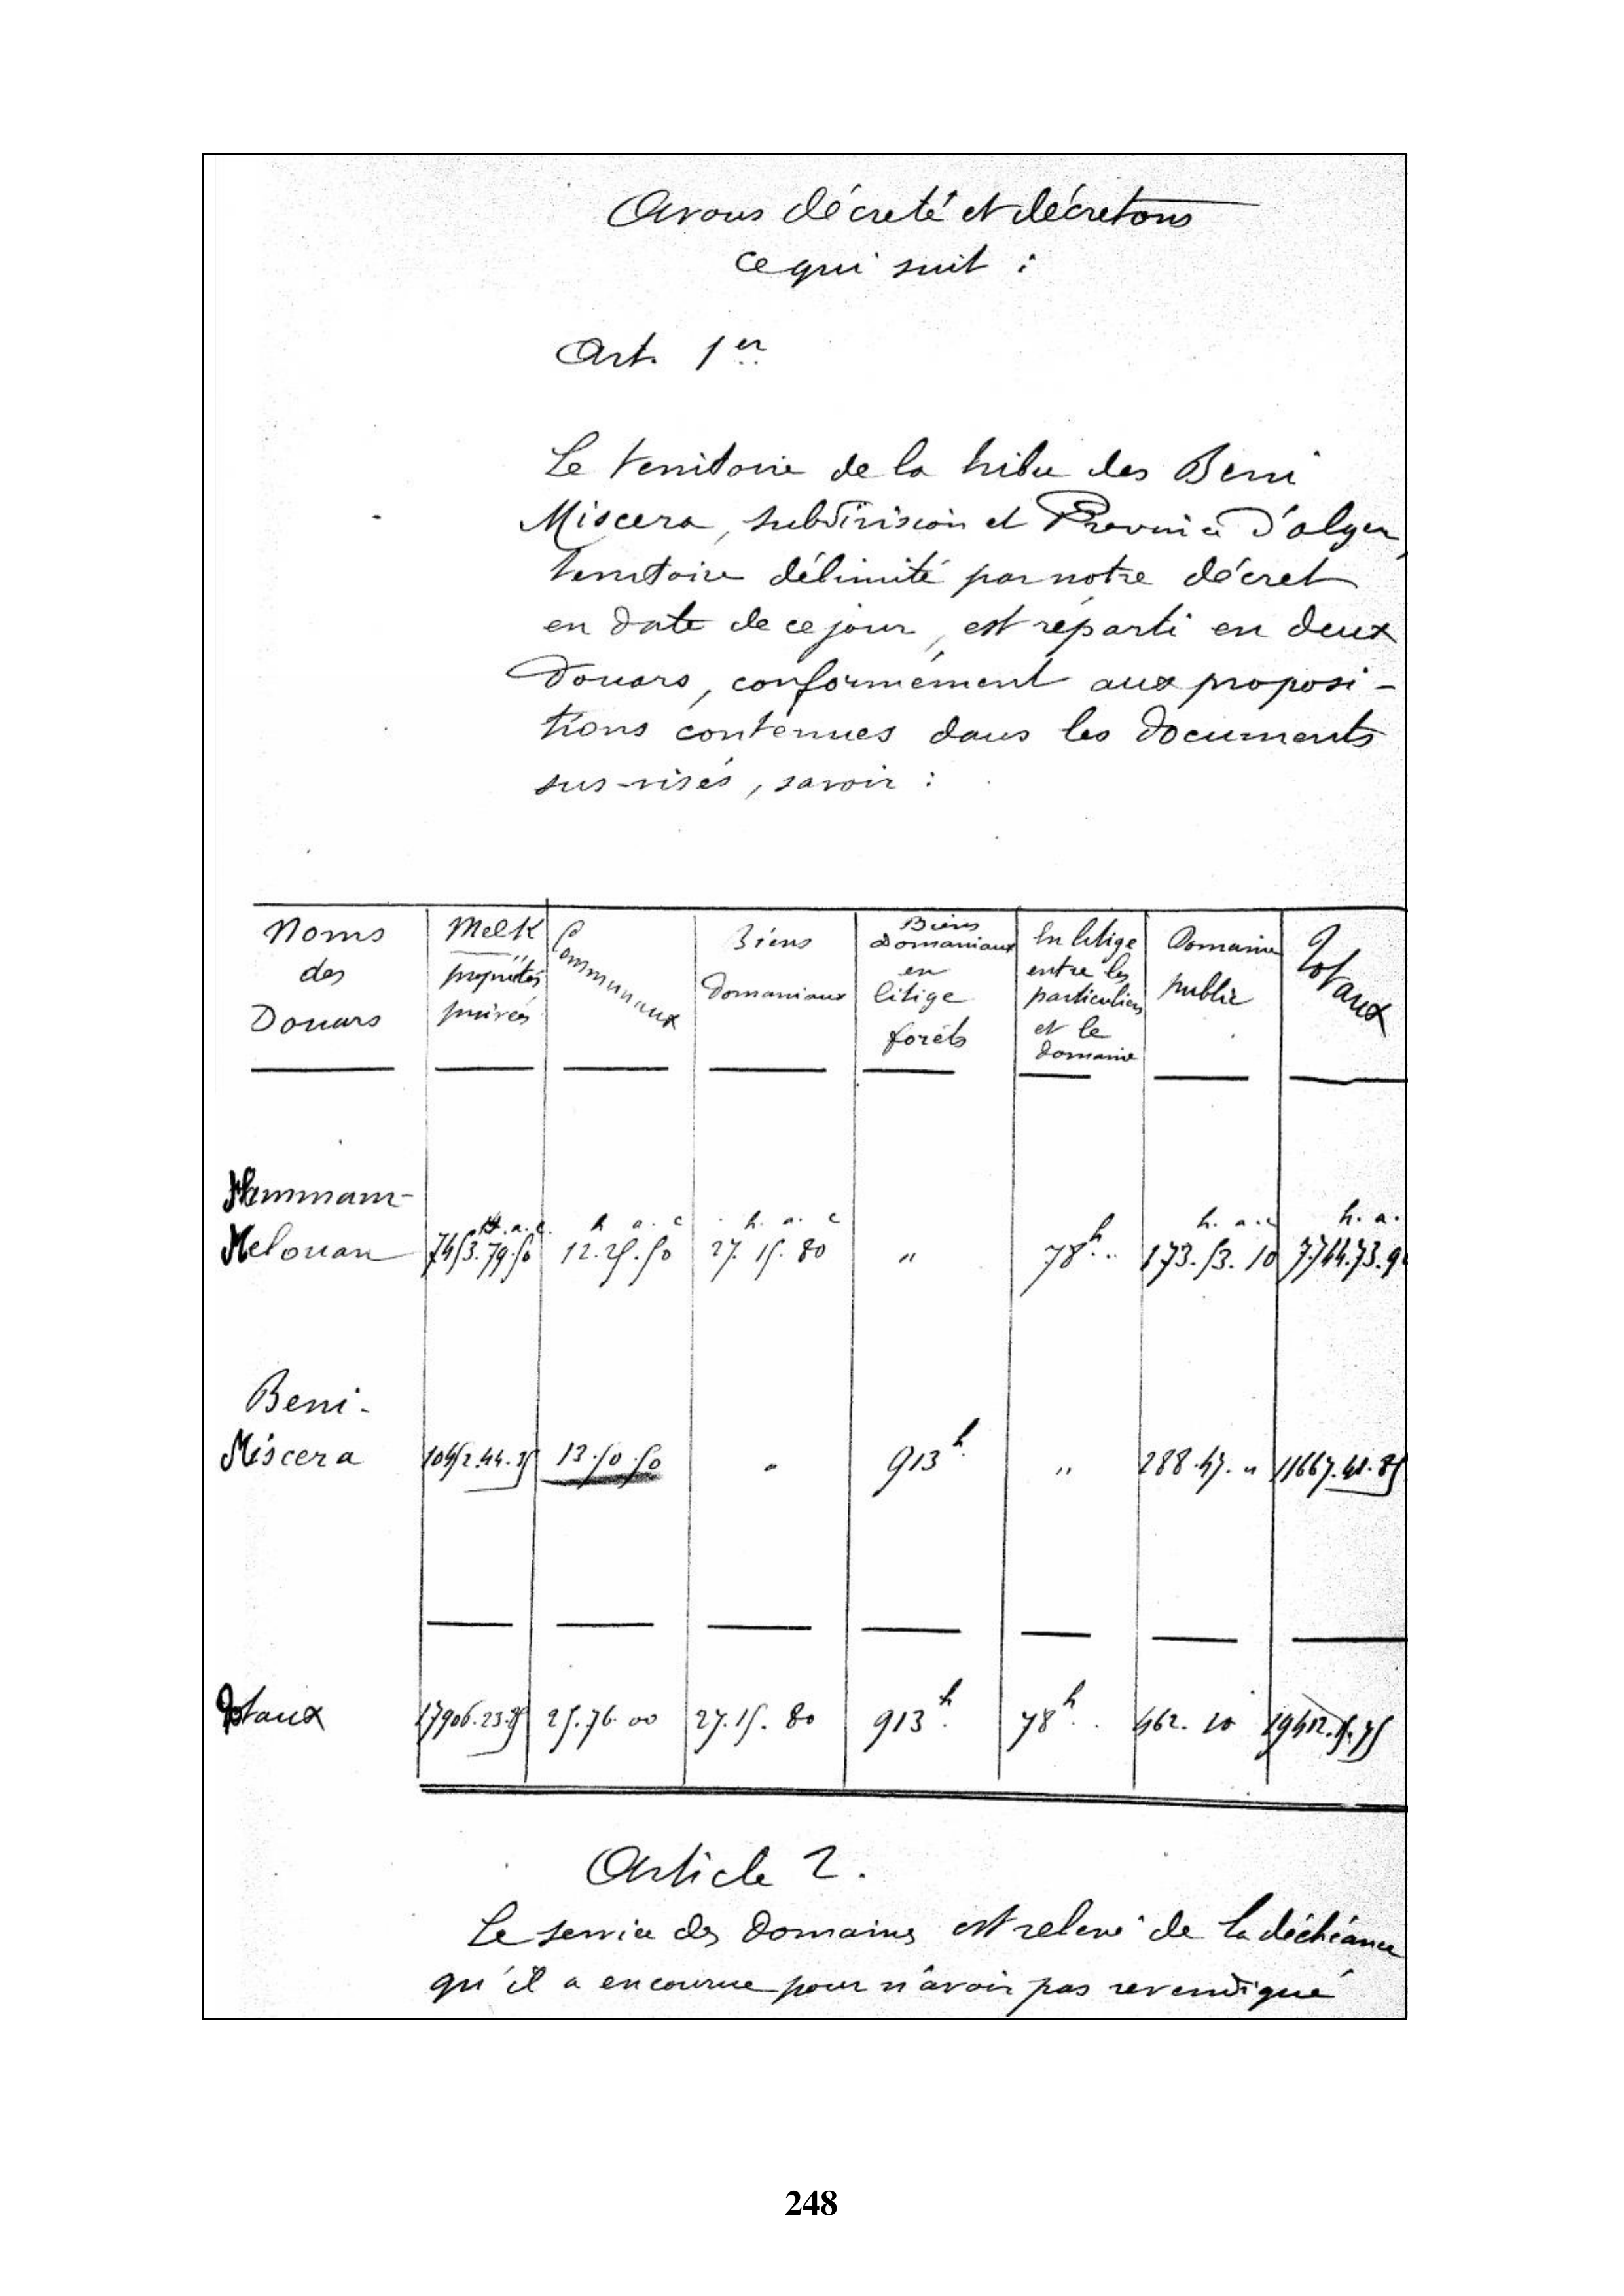 Avons décrété et décretons
ce qui suit :
Art. 1er
Le territoire de la tribu des Beni
Miscera, subdivision et Province d'alger,
territoire délimité par notre décret
en date de ce jour, est réparti en deux
Douars, conformément aux proposi-
tions contenues dans les documents
sus-visés, savoir :
Noms des Douars | Melk propriétés privées | Communaux | Biens Domaniaux | Biens Domaniaux en litige forêts | En litige entre les particuliers et le domaine | Domaine public | Totaux
Hammam-
H. a. c. | h a. c | h. a. c | h. a. c | h. a.
Melouan | 7453.79.50 | 12.25.50 | 27.15.80 | " | 78h.. | 173.53.10 | 7.744.73.9
Beni-
Miscera | 10452.44.35 | 13.50.50 | " | 913h | " | 288.47. " | 11667.41.85
Totaux | 17906.23.85 | 25.76.00 | 27.15.80 | 913h. | 78h.. | 462.10 | 19412.15.75
Article 2.
Le service des Domaines est relevé de la déchéance
qu'il a encourue pour n'avoir pas revendiqué
248